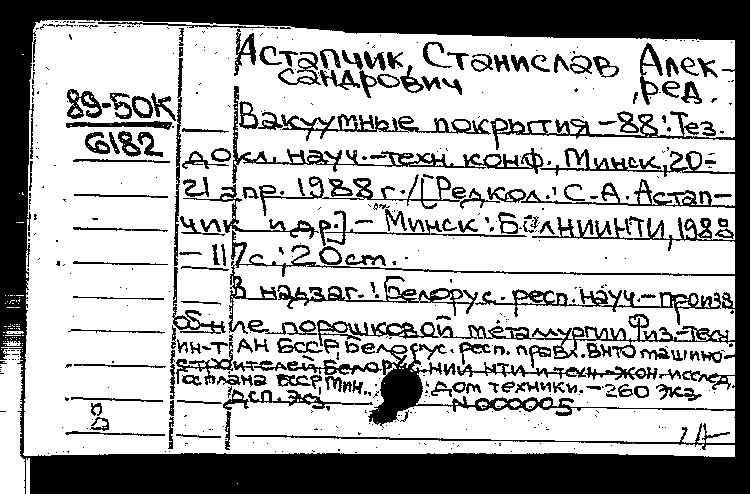 Астапчик, Станислав Алек-
сандрович, ред.
89-50К
6182
Вакуумные покрытия -88: Тез.
докл. науч.-техн. конф., Минск, 20-
21 апр. 1988 г. / [Редкол.: С.А. Астап-
чик и др.]. - Минск: БелНИИНТИ, 1988
- 117 с.; 20 см.
В надзаг.: Белорус. респ. науч.-произв.
об-ние порошковой металлургии, Физ.-техн.
ин-т АН БССР, Белорус. респ. правл. ВНТО машино-
строителей, Белорус. НИИ НТИ и техн.-экон. исслед.
Госплана БССР, Мин. дом техники. - 260 экз.
ДСП. Экз. N 000005.